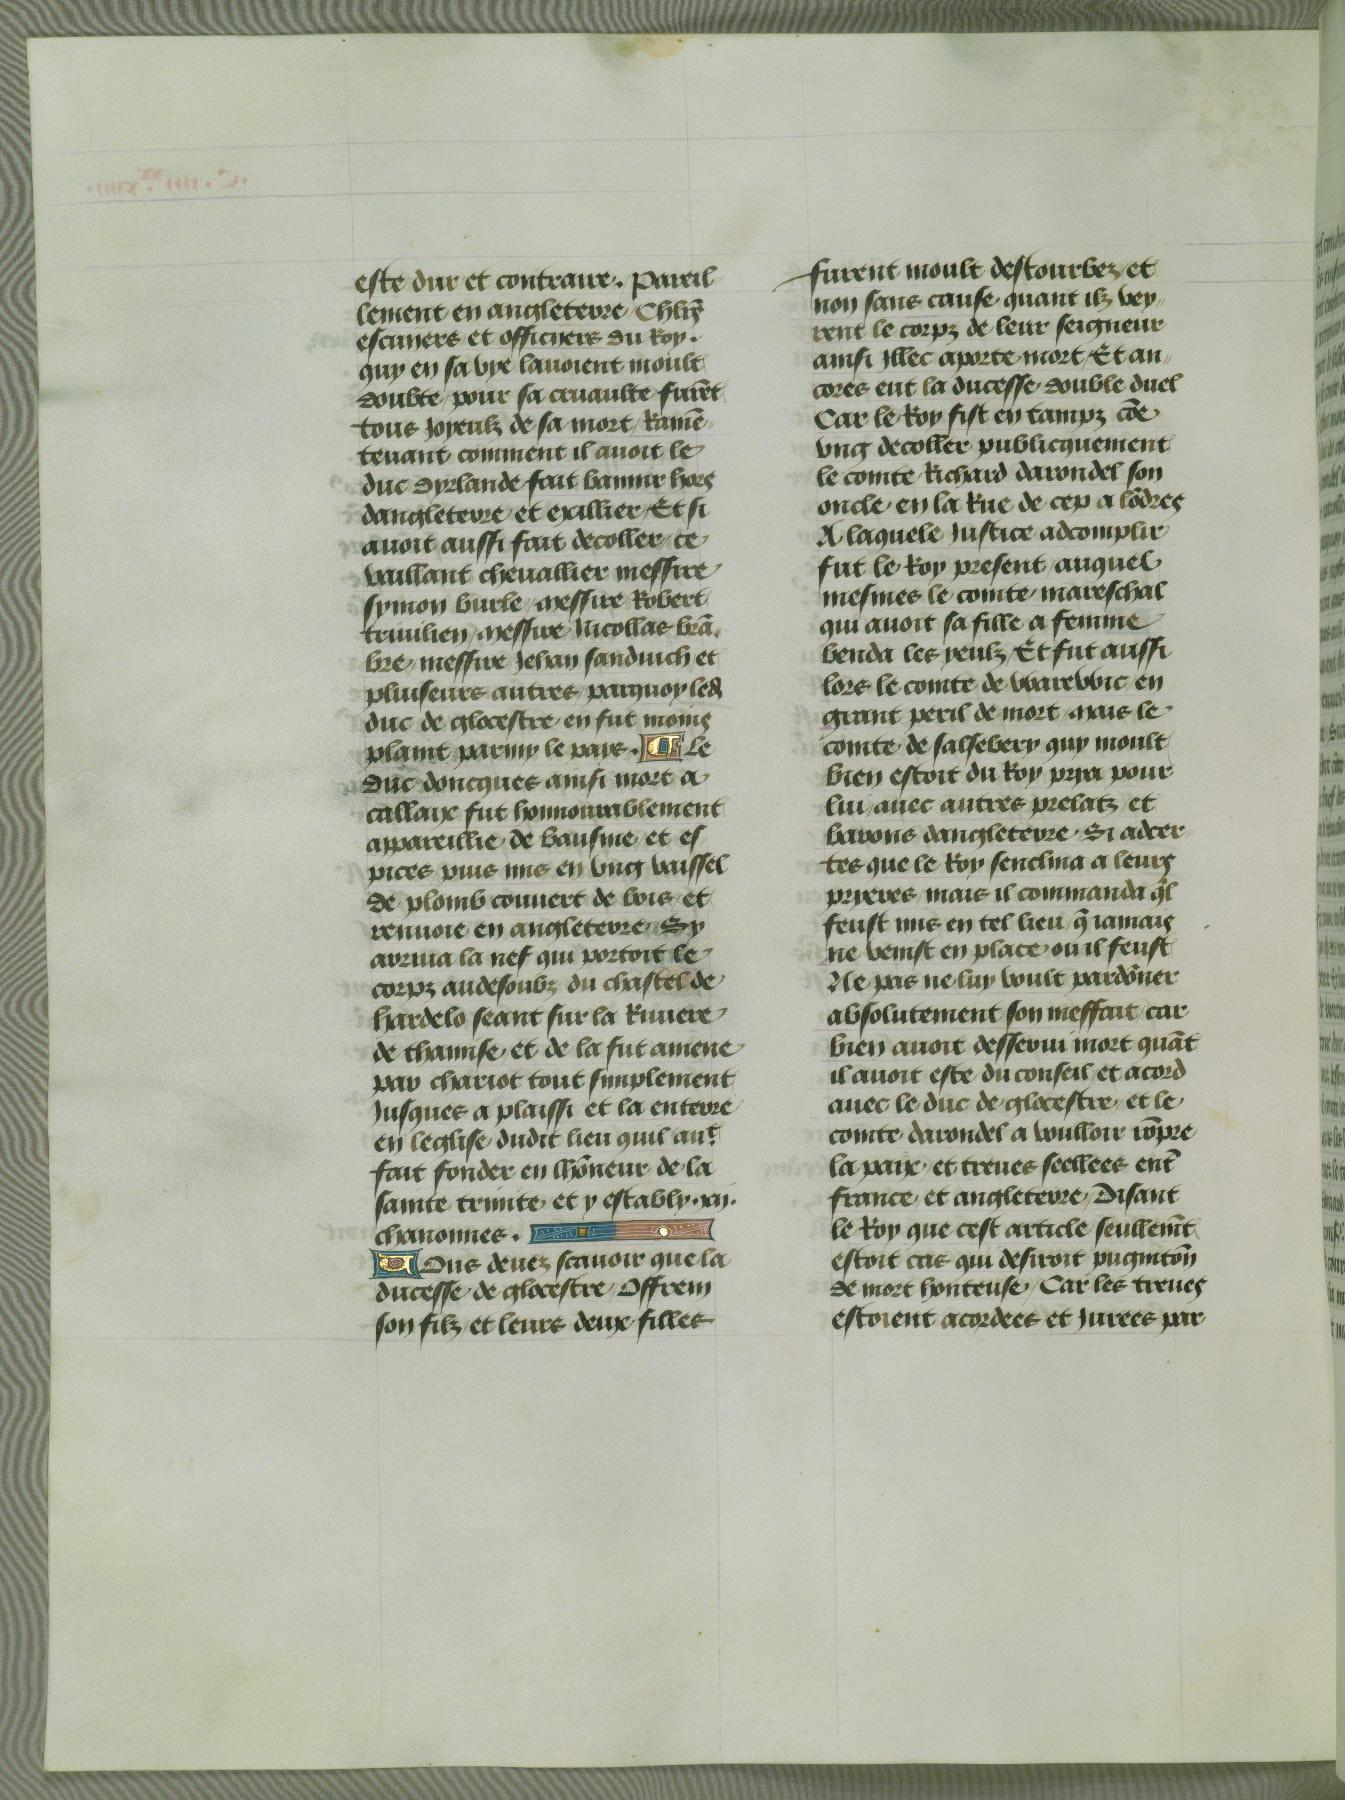 este dur et contraire. Pareil
lement en angleterre Chlrs̄
escuyers et officyers du Roy.
quy en sa vye lauoient moult
doubte pour sa cruaulte furēt
tous Joyeulz de sa mort Ramē
teuant comment il auoit le
duc dyrlande fait bannir hors
dangleterre et exillier Et si
auoit aussi fait decoller ce
vaillant cheuallier messire
symon burle messire Robert
triuilien messire Nicollas brā
bre messire Jehan sanduich et
pluiseurs autres parquoy led
duc de glocestre en fut moins
plaint parmy le pays. Le
Duc doncques ainsi mort a
callaix fut honnourablement
appareillie de bausme et es
pices puis mis en vng vaissel
de plomb couuert de bois et
renuoie en angleterre Sy
arriua la nef qui portoit le
corpz audesoubz du chastel de
hardelo seant sur la Riuiere
de thamise et de la fut amene
par chariot tout simplement
Jusques a plaissi et la enterre
en leglise dudit lieu quil auͭ
fait fonder en lhōneur de la
sainte trinite et y estably .xij.
chanonnes.
Vous deuez scauoir que la
ducesse de glocestre Offrem
son filz et leurs deux filles
furent moult destourbez et
non sans cause quant ilz vey
rent le corpz de leur seigneur
ainsi Jllec aporte mort Et an
cores eut la ducesse double duel
Car le Roy fist en tampz cōe
vng decoller publicquement
le comte Richard darondel son
oncle en la Rue de cep a lōdres
A laquele Justice adcomplir
fut le Roy present auquel
mesmes le comte mareschal
qui auoit sa fille a femme
benda les yeulz Et fut aussi
lors le comte de vvarevvic en
grant peril de mort mais le
comte de salsebery quy moult
bien estoit du Roy prya pour
lui auec autres prelatz et
barons dangleterre Si adcer
tes que le Roy senclina a leurs
pryeres mais il commanda q̄l
feust mis en tel lieu q̄ iamais
ne veinst en place ou il feust
Ne pas ne luy voult pardōner
absolutement son meffait car
bien auoit desserui mort quāt
il auoit este du conseil et acord
auec le duc de glocestre et le
comte darondel a voulloir rōpre
la paix et treues seellees ent̄
france et angleterre Disant
le Roy que cest article seullem̄t
estoit cas qui desiroit pugnitōn
de mort honteuse Car les treues
estoient acordees et Jurees par